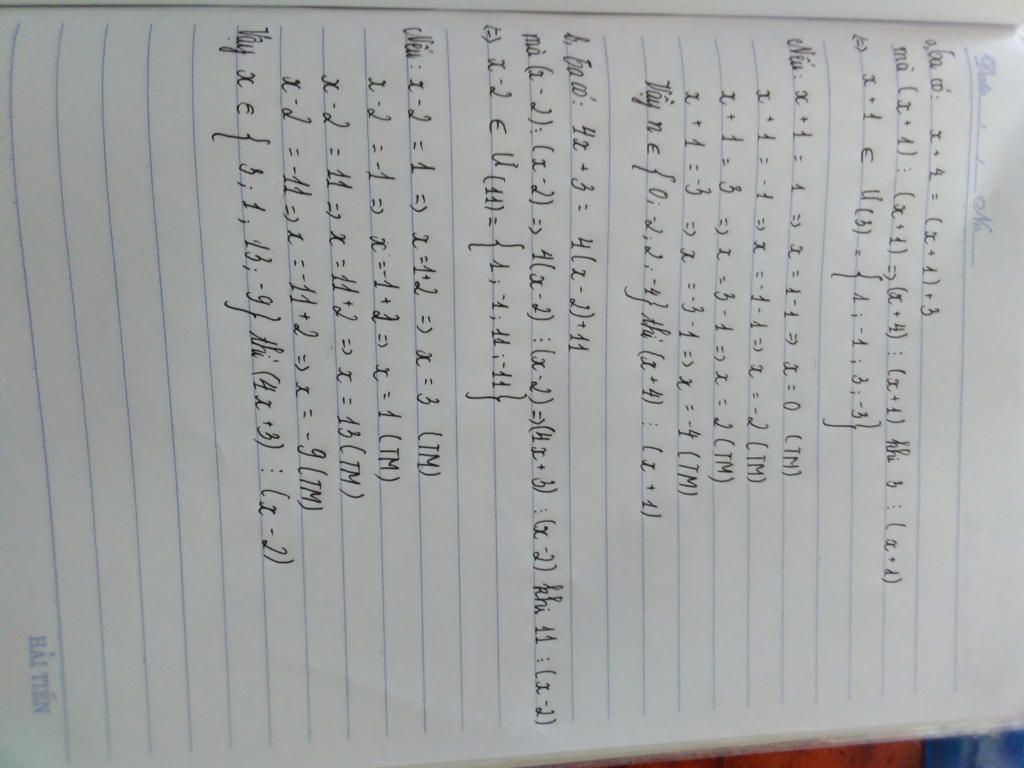 Thứ / / No
a, Ta có: x + 4 = (x + 1) + 3
mà (x + 1) ⋮ (x + 1) => (x + 4) ⋮ (x + 1) khi 3 ⋮ (x + 1)
<=> x + 1 ∈ Ư(3) = { 1 ; -1 ; 3 ; -3}
Nếu: x + 1 = 1 => x = 1 - 1 => x = 0 (TM)
x + 1 = -1 => x = -1 - 1 => x = -2 (TM)
x + 1 = 3 => x = 3 - 1 => x = 2 (TM)
x + 1 = -3 => x = -3 - 1 => x = -4 (TM)
Vậy n ∈ { 0; -2; 2; -4} thì (x + 4) ⋮ (x + 1)
b, Ta có: 4x + 3 = 4(x - 2) + 11
mà (x - 2) ⋮ (x - 2) => 4(x - 2) ⋮ (x - 2) => (4x + 3) ⋮ (x - 2) khi 11 ⋮ (x - 2)
<=> x - 2 ∈ Ư(11) = { 1 ; -1 ; 11 ; -11}
Nếu: x - 2 = 1 => x = 1 + 2 => x = 3 (TM)
x - 2 = -1 => x = -1 + 2 => x = 1 (TM)
x - 2 = 11 => x = 11 + 2 => x = 13 (TM)
x - 2 = -11 => x = -11 + 2 => x = -9 (TM)
Vậy x ∈ { 3 ; 1 ; 13 ; -9} thì (4x + 3) ⋮ (x - 2)
HẢI TIẾN